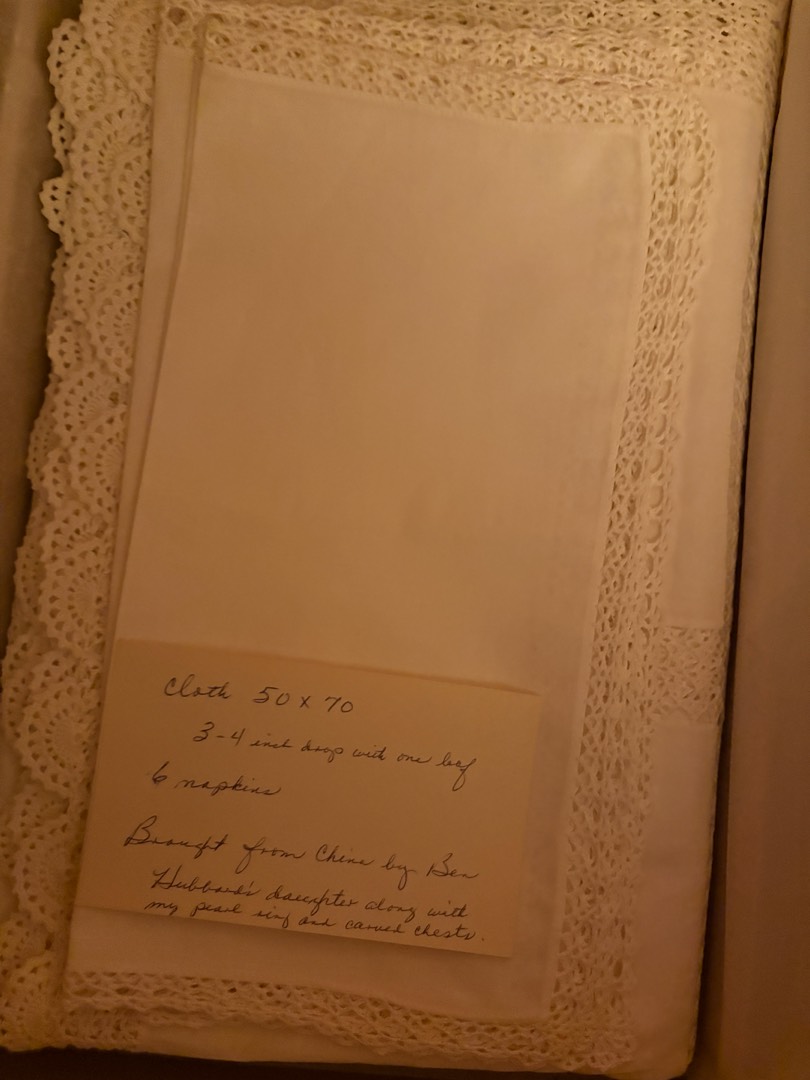 Cloth 50 x 70
3-4 inch drop with one leaf
6 napkins
Brought from China by Ben
Hubbard's daughter along with
my pearl ring and carved chests.